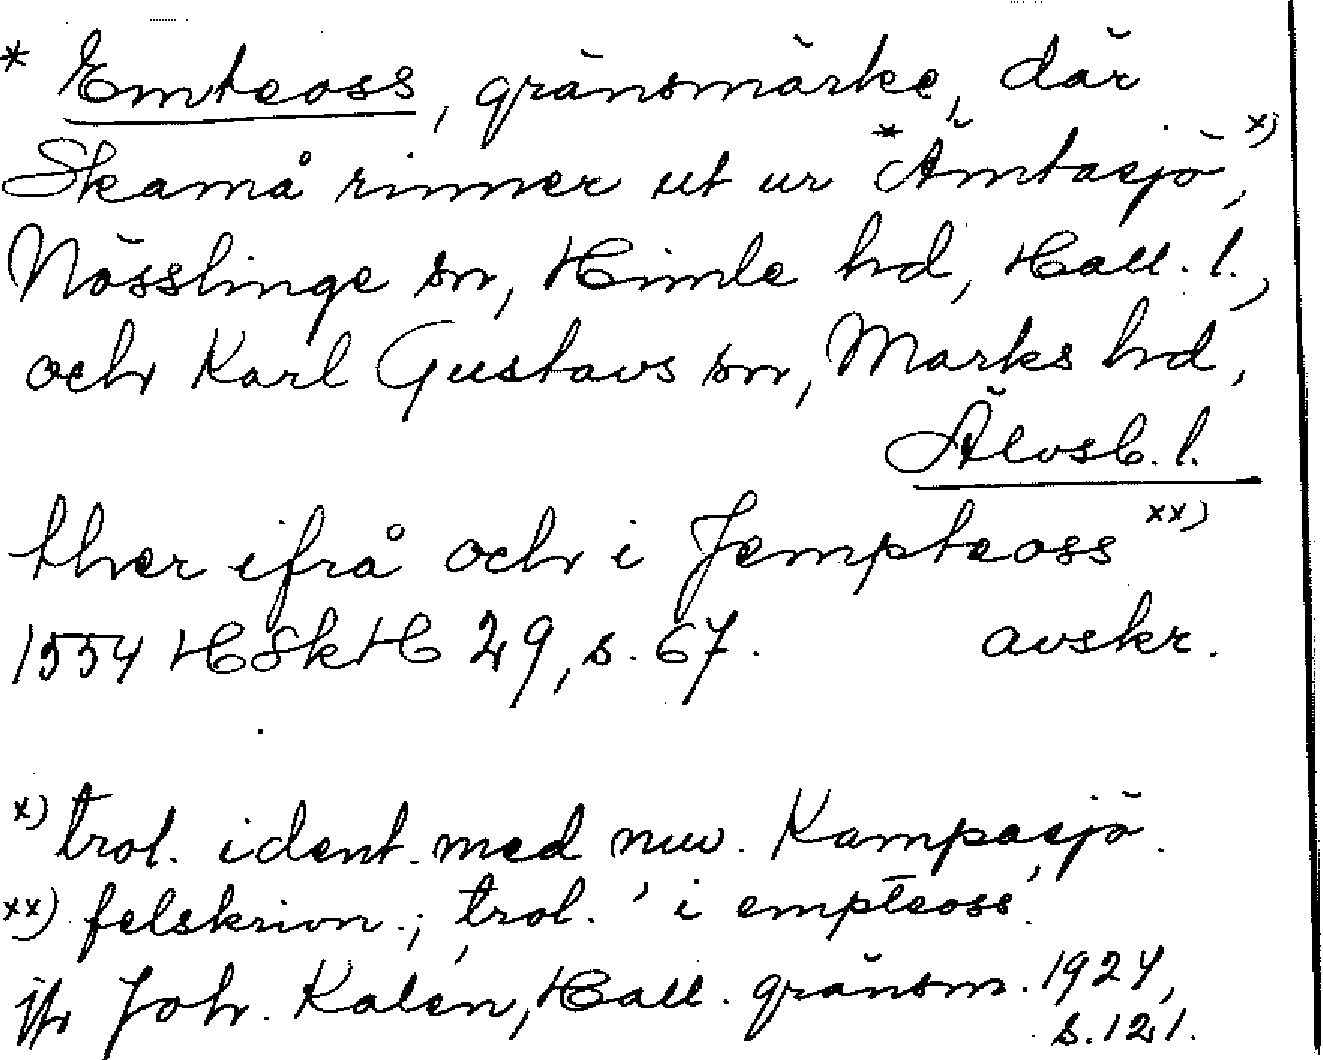 * Emteoss, gränsmärke, där
Skamå rinner ut ur *Ämtasjö, x)
Nösslinge sn, Himle hd, Hall. l.,
och Karl Gustavs sn, Marks hd,
Älvsb. l.
ther ifrå och i Jempteoss xx)
1554 HSkH 29, s. 67. avskr.
x) trol. ident. med nuv. Kampasjö.
xx) felskrivn.; trol. 'i empteoss'.
jfr Joh. Kalén, Hall. gränsm. 1924,
s. 121.